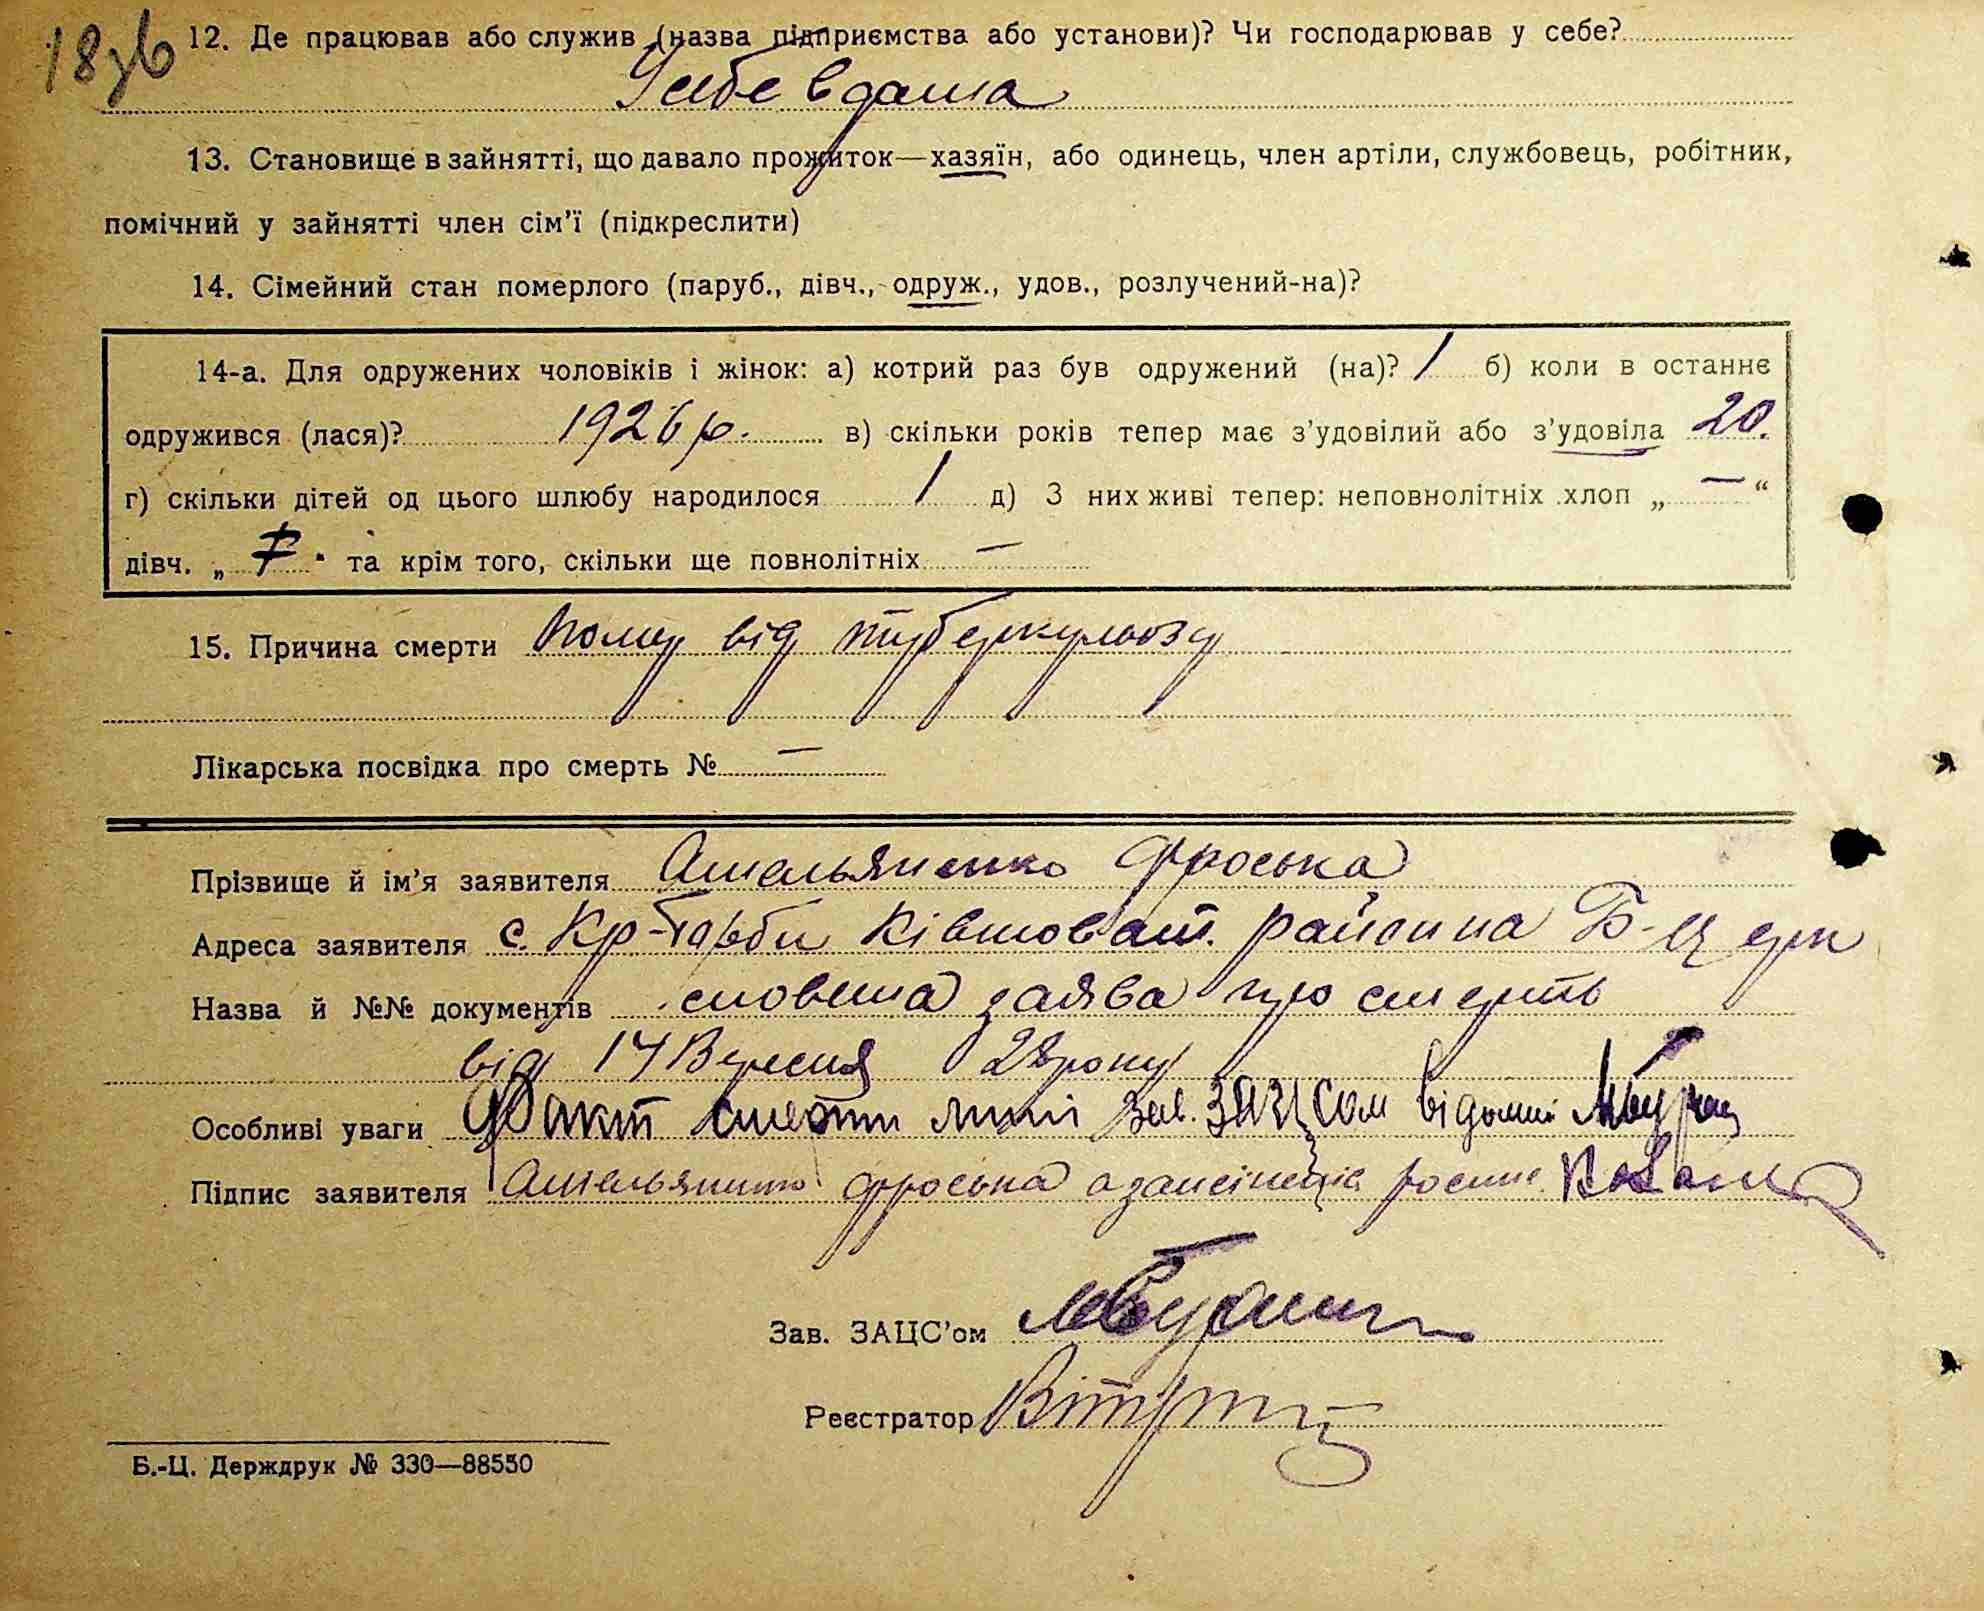 18зв 12. Де працював або служив (назва підприємства або установи)? Чи господарював у себе?
У себе вдома
13. Становище в зайнятті, що давало прожиток—хазяїн, або одинець, член артіли, службовець, робітник,
помічний у зайнятті член сім'ї (підкреслити)
14. Сімейний стан померлого (паруб., дівч., одруж., удов., розлучений-на)?
14-а. Для одружених чоловіків і жінок: а) котрий раз був одружений (на)? 1 б) коли в останнє
одружився (лася)? 1926 р. в) скільки років тепер має з'удовілий або з'удовіла 20.
г) скільки дітей од цього шлюбу народилося 1 д) З них живі тепер: неповнолітніх хлоп „ — “
дівч. „ “ та крім того, скільки ще повнолітніх —
15. Причина смерти Помер від туберкульозу
Лікарська посвідка про смерть № —
Прізвище й ім'я заявителя Омельяненко Фроська
Адреса заявителя с. Кр- Ківшоват. района Б-Церк
Назва й №№ документів словесна заява про смерть
від 17 Вересня 28 року
Особливі уваги Факт смерти мині зав. ЗАЦСом відомий
Підпис заявителя Омельяненко Фроська а за неї
Зав. ЗАЦС'ом
Реєстратор
Б.-Ц. Держдрук № 330—88550